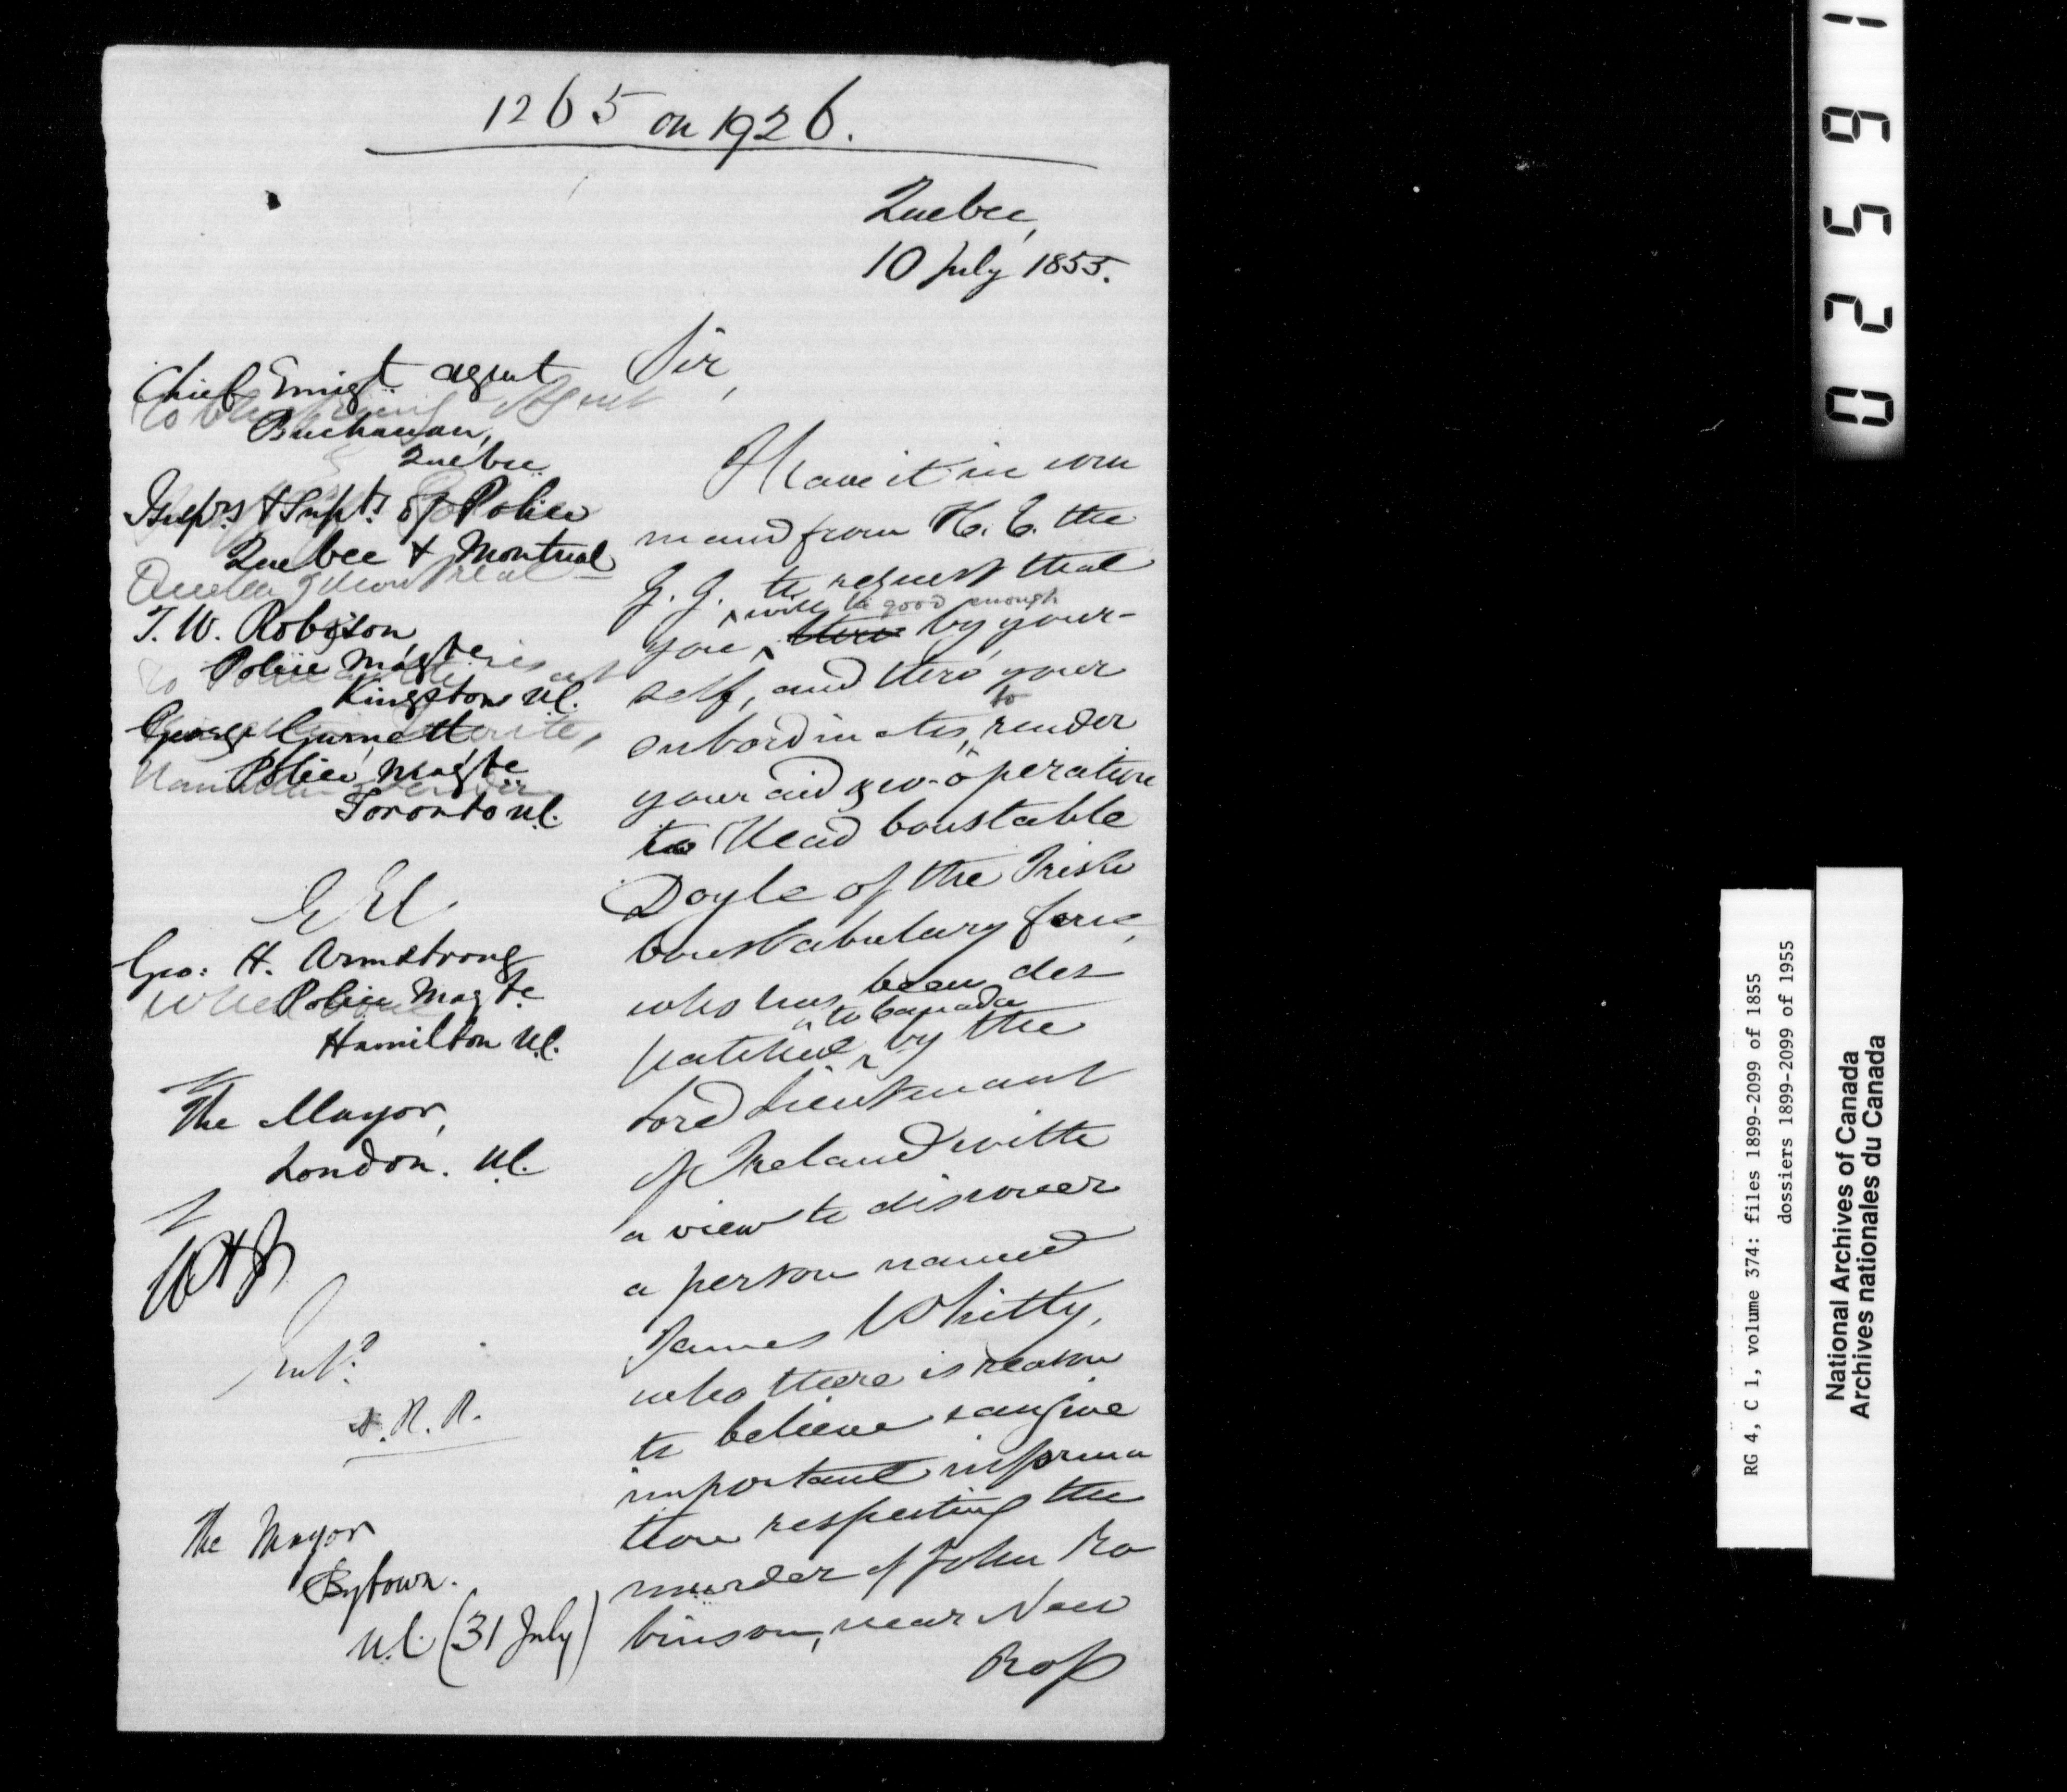 1265 on 1926.
Quebec,
10 July 1855.
Chief Emigt. agent
Buchanan,
Quebec
Insprs & Supts. of Police
Quebec & Montreal
T. W. Robison,
Police Magte
Kingston U.C.
George Gurnett,
Police Magte
Toronto U.C.
Geo: H. Armstrong
Police Magte
Hamilton U.C.
The Mayor,
London. U.C.
The Mayor
Bytown.
U.C. (31 July)
Sir,
I have it in com
mand from H. E. the
G. G. to request that
will be good enough
you by your-
self, and thro' your
to
subordinates, render
your aid & co-operation
to Head Constable
Doyle of the Irish
Constabulary force,
who has been des
to Canada
patched by the
Lord Lieutenant
of Ireland with
a view to discover
a person named
James Whitty,
who there is reason
to believe can give
important informa
tion respecting the
murder of John Ro
binson, near New
Ross
02591
RG 4, C 1, volume 374: files 1899-2099 of 1855
dossiers 1899-2099 of 1955
National Archives of Canada
Archives nationales du Canada